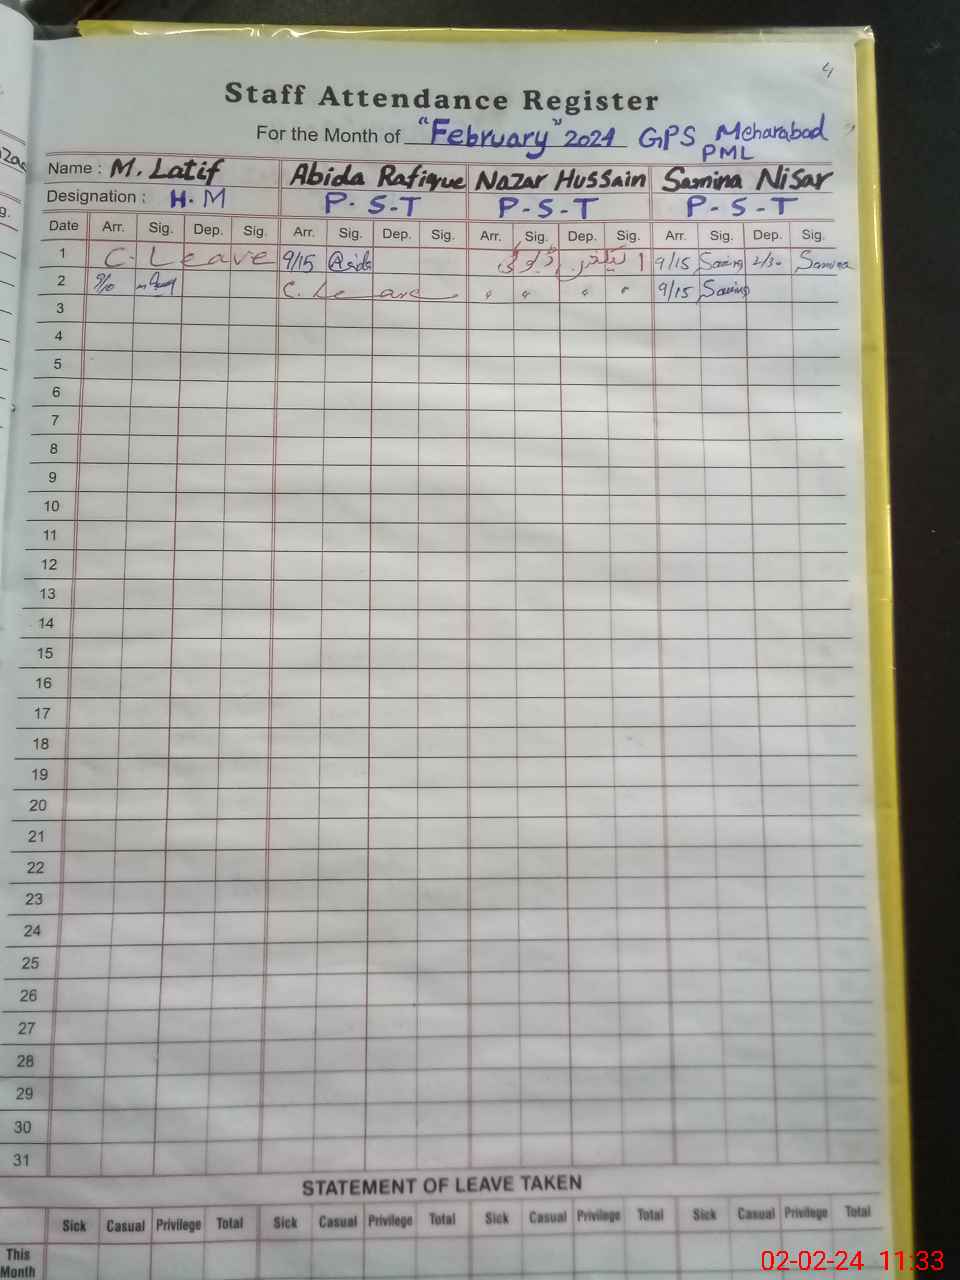 4
Staff Attendance Register
For the Month of "February" 2024 GPS Meharabad
PML
Name : M. Latif Abida Rafique Nazar Hussain Samina Nisar
Designation : H.M P-S-T P-S-T P-S-T
Date Arr. Sig. Dep. Sig. Arr. Sig. Dep. Sig. Arr. Sig. Dep. Sig. Arr. Sig. Dep. Sig.
1 C. Leave 9/15 Abida الیکشن ڈیوٹی 9/15 Samina 2/30 Samina
2 C. Leave " " " " 9/15 Samina
3
4
5
6
7
8
9
10
11
12
13
14
15
16
17
18
19
20
21
22
23
24
25
26
27
28
29
30
31
STATEMENT OF LEAVE TAKEN
Sick Casual Privilege Total Sick Casual Privilege Total Sick Casual Privilege Total Sick Casual Privilege Total
This
Month
02-02-24 11:33